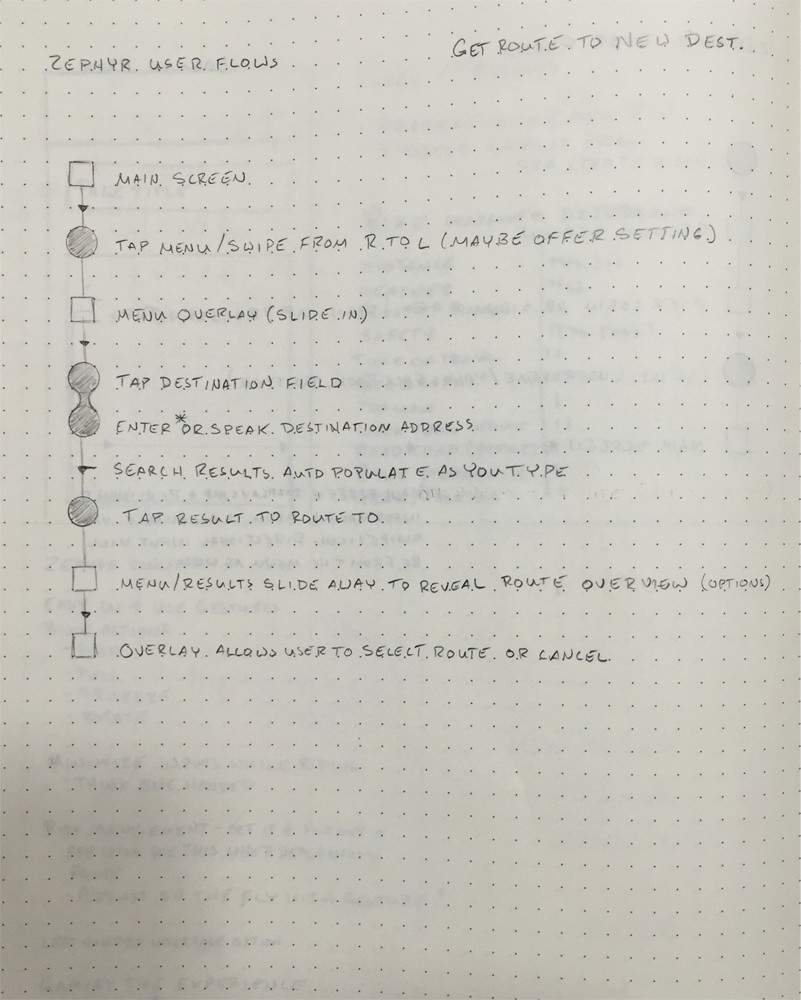 ZEPHYR USER FLOWS
GET ROUTE TO NEW DEST.
MAIN SCREEN
TAP MENU/SWIPE FROM R TO L (MAYBE OFFER SETTING)
MENU OVERLAY (SLIDE IN)
TAP DESTINATION FIELD
ENTER * OR SPEAK DESTINATION ADDRESS
SEARCH RESULTS AUTO POPULATE AS YOU TYPE
TAP RESULT TO ROUTE TO
MENU/RESULTS SLIDE AWAY TO REVEAL ROUTE OVERVIEW (OPTIONS)
OVERLAY ALLOWS USER TO SELECT ROUTE OR CANCEL